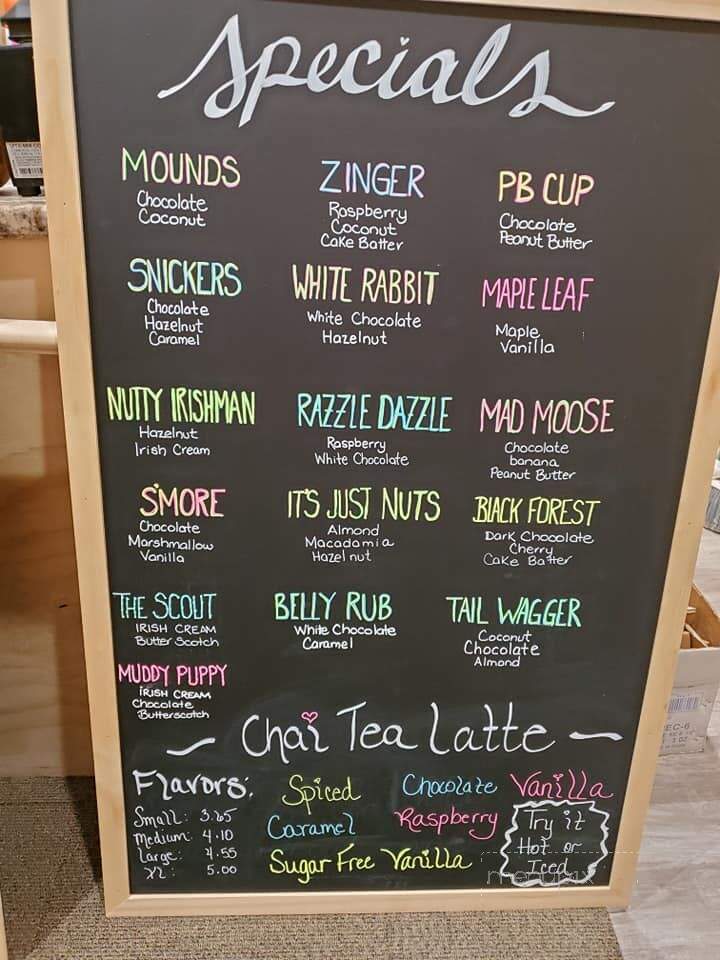 Specials
MOUNDS
Chocolate
Coconut
ZINGER
Raspberry
Coconut
Cake Batter
PB CUP
Chocolate
Peanut Butter
SNICKERS
Chocolate
Hazelnut
Caramel
WHITE RABBIT
White Chocolate
Hazelnut
MAPLE LEAF
Maple
Vanilla
NUTTY IRISHMAN
Hazelnut
Irish Cream
RAZZLE DAZZLE
Raspberry
White Chocolate
MAD MOOSE
Chocolate
banana
Peanut Butter
S'MORE
Chocolate
Marshmallow
Vanilla
IT'S JUST NUTS
Almond
Macadamia
Hazelnut
BLACK FOREST
Dark Chocolate
Cherry
Cake Batter
THE SCOUT
IRISH CREAM
Butter Scotch
BELLY RUB
White Chocolate
Caramel
TAIL WAGGER
Coconut
Chocolate
Almond
MUDDY PUPPY
IRISH CREAM
Chocolate
Butterscotch
Chai Tea Latte
Flavors:
Spiced
Chocolate
Vanilla
Caramel
Raspberry
Sugar Free Vanilla
Small: 3.65
Medium: 4.10
Large: 4.55
XL: 5.00
Try it
Hot or
Iced
menupix
EC-6